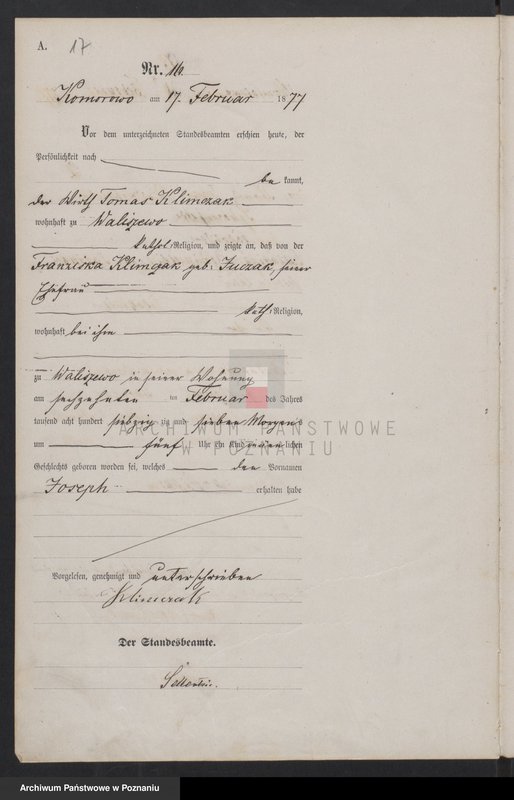 A. 17
Nr. 16.
Komorowo am 17. Februar 1877
Vor dem unterzeichneten Standesbeamten erschien heute, der
Persönlichkeit nach
be kannt,
der Wirth Tomas Klimczak
wohnhaft zu Waliszewo
kathol: Religion, und zeigte an, daß von der
Franziska Klimczak geb: Juczak, seiner
Ehefrau
kath: Religion,
wohnhaft bei ihm
zu Waliszewo in seiner Wohnung
am sechzehnten ten Februar des Jahres
tausend acht hundert siebzig und sieben Morgens
um fünf Uhr ein Kind männlichen
Geschlechts geboren worden sei, welches den Vornamen
Joseph erhalten habe
Vorgelesen, genehmigt und unterschrieben
Klimczak
Der Standesbeamte.
ARCHIWUM PAŃSTWOWE
W POZNANIU
Archiwum Państwowe w Poznaniu